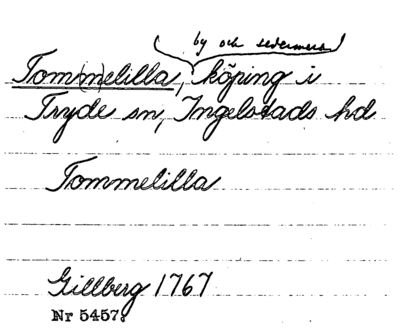 (by och sedermera)
Tom(m)elilla, köping i
Tryde sn, Ingelstads hd
Tommelilla
Gillberg 1767
Nr 5457.